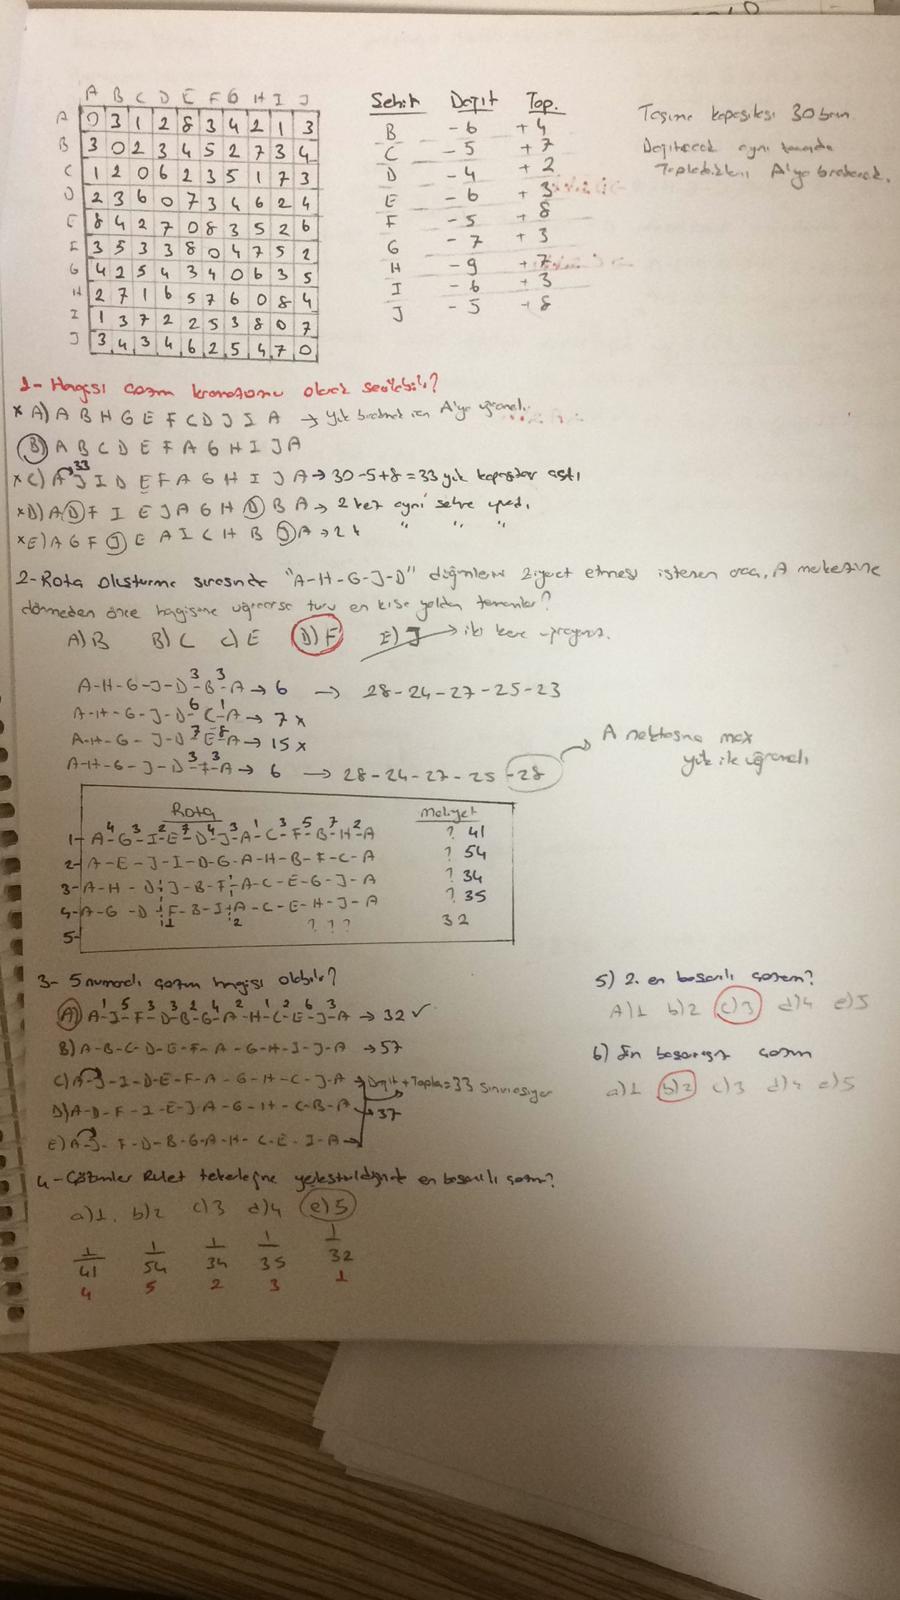 A B C D E F G H I J
A 0 3 1 2 8 3 4 2 1 3
B 3 0 2 3 4 5 2 7 3 4
C 1 2 0 6 2 3 5 1 7 3
D 2 3 6 0 7 3 4 6 2 4
E 8 4 2 7 0 8 3 5 2 6
F 3 5 3 3 8 0 4 7 5 2
G 4 2 5 4 3 4 0 6 3 5
H 2 7 1 6 5 7 6 0 8 4
I 1 3 7 2 2 5 3 8 0 7
J 3 4 3 4 6 2 5 4 7 0
Şehir Dağıt Top.
B -6 +4
C -5 +7
D -4 +2
E -6 +3
F -5 +8
G -7 +3
H -9 +7
I -6 +3
J -5 +8
Taşıma kapasitesi 30 birim
Dağıtacak aynı zamanda
Topladıkları A'ya bırakacak.
1- Hangisi çözüm kromozomu olarak seçilebilir?
x A) A B H G E F C D J I A → yük bırakmak için A'ya uğramalı.
B) A B C D E F A G H I J A
33
x C) A J I D E F A G H I J A → 30-5+8=33 yük kapasitesi aştı
x D) A D F I E J A G H D B A → 2 kez aynı şehre
x E) A G F J E A I C H B J A → 2 k " " "
2- Rota oluşturma sırasında "A-H-G-J-D" düğümlerini ziyaret etmesi istenen araç, A merkezine
dönmeden önce hangisine uğrarsa turu en kısa yoldan tamamlar?
A) B B) C C) E D) F E) J → iki kere
3 3
A-H-G-J-D-B-A → 6 → 28-24-27-25-23
6 1
A-H-G-J-D-C-A → 7 x
7 8
A-H-G-J-D-E-A → 15 x
3 3
A-H-G-J-D-F-A → 6 → 28-24-27-25-28
A noktasına max
yük ile uğramalı
Rota Maliyet
4 3 2 7 4 3 1 3 5 7 2
1- A-G-I-E-D-J-A-C-F-B-H-A ? 41
2- A-E-J-I-D-G-A-H-B-F-C-A ? 54
3- A-H-D-J-B-F-A-C-E-G-J-A ? 34
4- A-G-D-F-B-I-A-C-E-H-J-A ? 35
1 2
5- ? ? ? 32
3- 5 numaralı çözüm hangisi olabilir?
1 5 3 3 2 4 2 1 2 6 3
A) A-J-F-D-B-G-A-H-C-E-J-A → 32 ✓
B) A-B-C-D-E-F-A-G-H-I-J-A → 57
C) A-J-I-D-E-F-A-G-H-C-J-A → Dağıt+Topla=33
D) A-D-F-I-E-J-A-G-H-C-B-A → 37
E) A-J-F-D-B-G-A-H-C-E-I-A →
4- Çözümler Rulet tekerleğine yerleştirildiğinde en başarılı çözüm?
a) 1. b) 2 c) 3 d) 4 e) 5
1/41 1/54 1/34 1/35 1/32
4 5 2 3 1
5) 2. en başarılı çözüm?
A) 1 b) 2 c) 3 d) 4 e) 5
6) En başarısız çözüm
a) 1 b) 2 c) 3 d) 4 e) 5